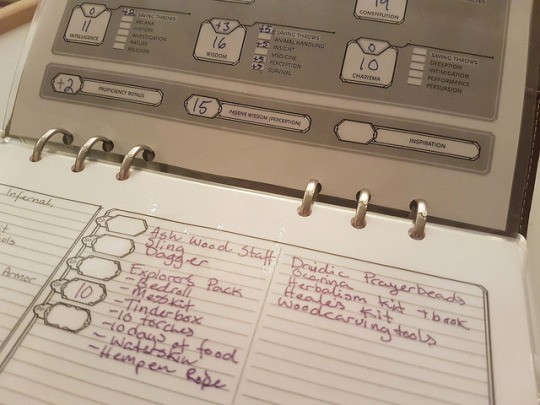 CONSTITUTION
0
11
INTELLIGENCE
SAVING THROWS
ARCANA
HISTORY
INVESTIGATION
NATURE
RELIGION
+3
16
WISDOM
+5 SAVING THROWS
ANIMAL HANDLING
INSIGHT
MEDICINE
PERCEPTION
SURVIVAL
0
10
CHARISMA
SAVING THROWS
DECEPTION
INTIMIDATION
PERFORMANCE
PERSUASION
+2 PROFICIENCY BONUS
15 PASSIVE WISDOM (PERCEPTION)
INSPIRATION
Infernal
Armor
10
Ash Wood Staff
Sling
Dagger
Explorers Pack
- Bedroll
- Messkit
- Tinderbox
- 10 torches
- 10 days of food
- Waterskin
- Hempen Rope
Druidic Prayerbeads
Ocarina
Herbalism Kit + book
Heales Kit
Woodcarving tools